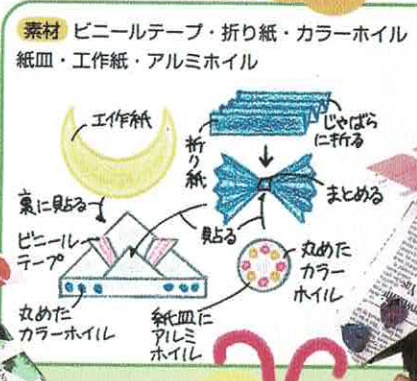 素材 ビニールテープ・折り紙・カラーホイル
紙皿・工作紙・アルミホイル
工作紙
折り紙
じゃばら
に折る
まとめる
裏に貼る
貼る
ビニール
テープ
丸めた
カラー
ホイル
丸めた
カラーホイル
紙皿に
アルミ
ホイル